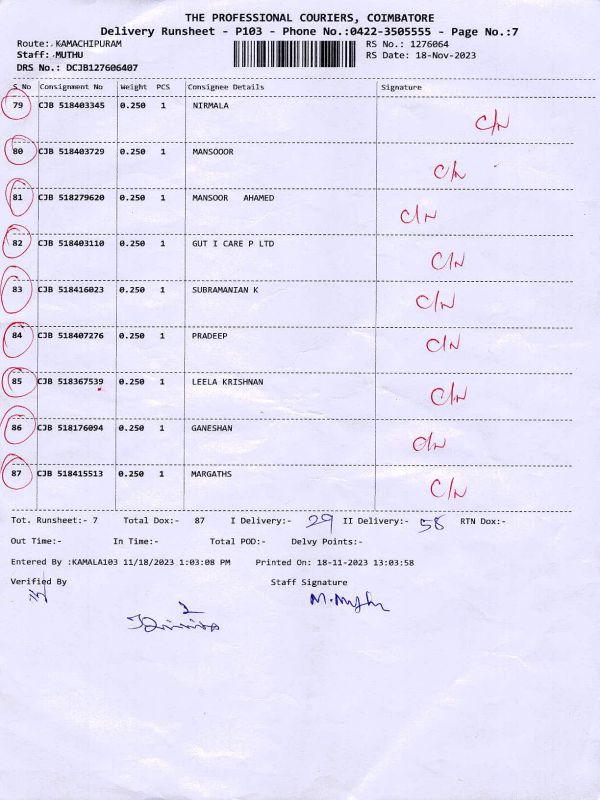 THE PROFESSIONAL COURIERS, COIMBATORE
Delivery Runsheet - P103 - Phone No.:0422-3505555 - Page No.:7
Route:. KAMACHIPURAM RS No.: 1276064
Staff: MUTHU RS Date: 18-Nov-2023
DRS No.: DCJB127606407
S No Consignment No Weight PCS Consignee Details Signature
79 CJB 518403345 0.250 1 NIRMALA C/N
80 CJB 518403729 0.250 1 MANSOOOR C/N
81 CJB 518279620 0.250 1 MANSOOR AHAMED C/N
82 CJB 518403110 0.250 1 GUT I CARE P LTD C/N
83 CJB 518416023 0.250 1 SUBRAMANIAN K C/N
84 CJB 518407276 0.250 1 PRADEEP C/N
85 CJB 518367539 0.250 1 LEELA KRISHNAN C/N
86 CJB 518176094 0.250 1 GANESHAN C/N
87 CJB 518415513 0.250 1 MARGATHS C/N
Tot. Runsheet:- 7 Total Dox:- 87 I Delivery:- 29 II Delivery:- 58 RTN Dox:-
Out Time:- In Time:- Total POD:- Delvy Points:-
Entered By :KAMALA103 11/18/2023 1:03:08 PM Printed On: 18-11-2023 13:03:58
Verified By Staff Signature
M. Muthu